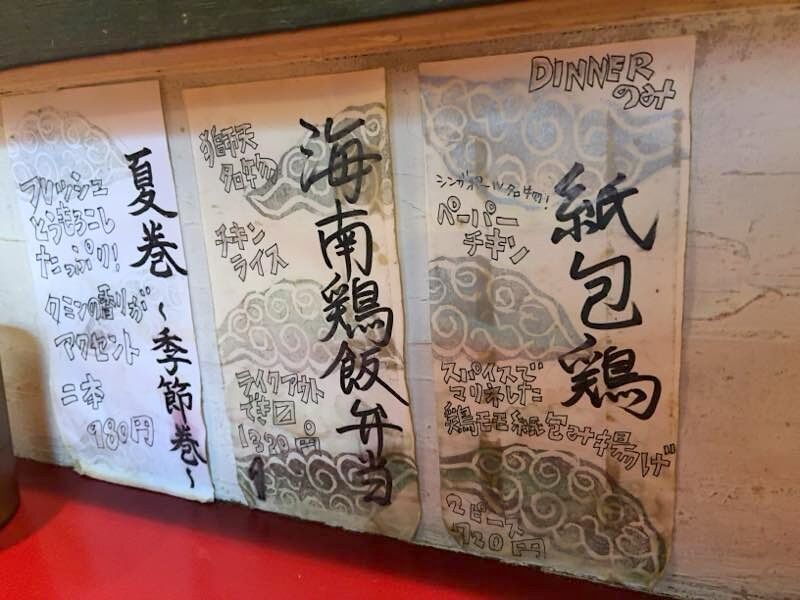 DINNER
のみ
紙包鶏
シンガポール名物!
ペーパー
チキン
スパイスで
マリネした
鶏モモ紙包み揚げ
2ピース
720円
海南鶏飯弁当
獅天
名物
チキン
ライス
テイクアウト
でき〼
1320円
夏巻~季節巻~
フレッシュ
とうもろこし
たっぷり!
クミンの香りが
アクセント
二本
980円